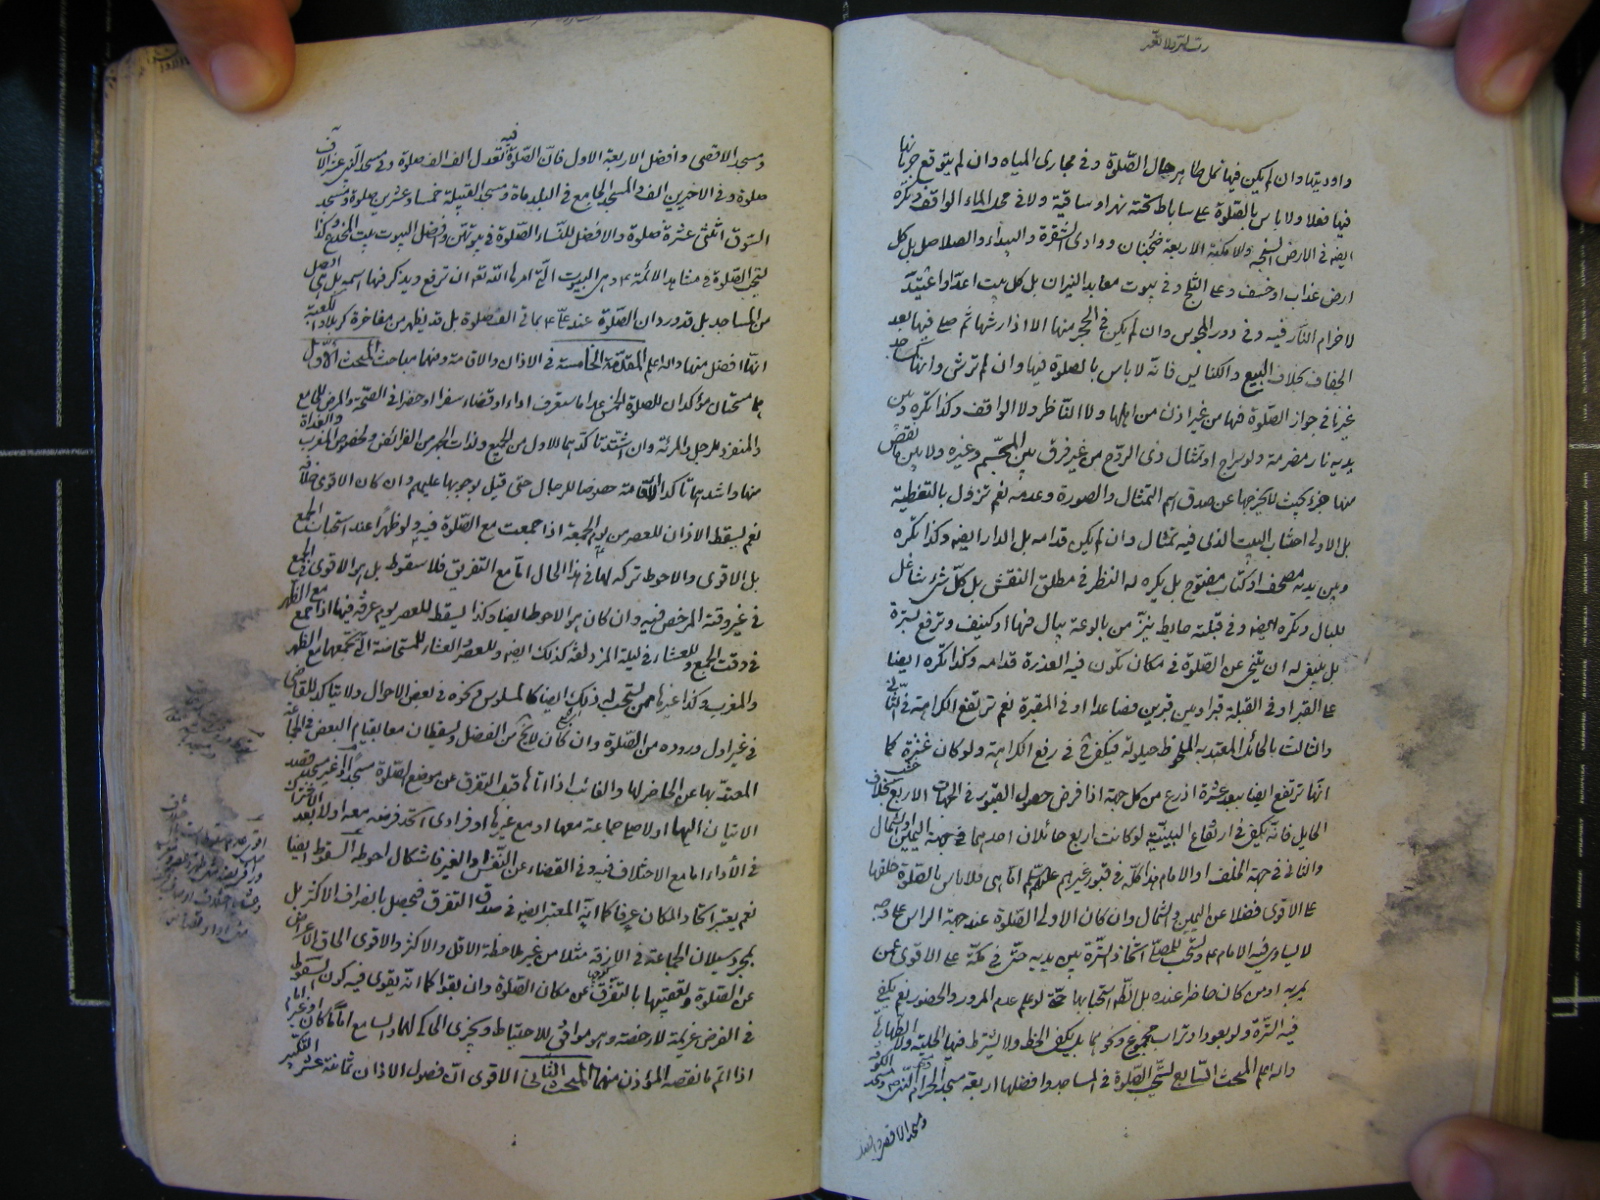 واوديتها وان لم يكن فيها نمل ظاهر حال الصلوة وفي مجاري المياه وان لم يتوقع جريانها
فيها فعلا ولا باس بالصلوة على ساباط تحته نهر او ساقية ولا في محل الماء الواقف وتكره
ايضا في الارض السبخة والامكنة الاربعة ضجنان ووادي الشقرة والبيداء والصلاصل بل كل
ارض عذاب او خسف وعلى الثلج وفي بيوت معابد النيران بل كل بيت اعد او اعتيد
لاضرام النار فيه وفي دور المجوس وان لم يكن في الحجر منها الا اذا رشها ثم صلى فيها بعد
الجفاف بخلاف البيع والكنائس فانه لا باس بالصلوة فيها وان لم ترش وانها كمساجد
غيرنا في جواز الصلوة فيها من غير اذن من اهلها ولا الناظر ولا الواقف وكذا تكره وبين
يديه نار مضرمة ولو سراج او تمثال ذي الروح من غير فرق بين المجسم وغيره ولا بين ما نقص
منها جزء بحيث لا يخرجها عن صدق اسم التمثال والصورة وعدمه نعم تزول بالتغطية
بل الاولى اجتناب البيت الذي فيه تمثال وان لم يكن قدامه بل الدار ايضا وكذا تكره
وبين يديه مصحف او كتاب مفتوح بل يكره له النظر في مطلق النقش بل كل شيء شاغل
للبال وتكره ايضا وفي قبلته حايط ينز من بالوعة يبال فيها او كنيف وترفع بسترة
بل ينبغي له ان يتنحى عن الصلوة في مكان تكون فيه العذرة قدامه وكذا تكره ايضا
على القبر او في القبلة قبر او بين قبرين فصاعدا او في المقبرة نعم ترتفع الكراهة في الثاني
والثالث بالحائل المعتد به الملحوظ حيلولة فيكفي في رفع الكراهة ولو كان عنزة كما
انها ترتفع ايضا ببعد عشرة اذرع من كل جهة اذا فرض حصول القبور في الجهات الاربع بخلاف
الحايل فانه يكفي في ارتفاع البينية لو كانت اربع حائلان احدهما في جهة اليمين او الشمال
والثاني في جهة الخلف او الامام هذا كله في قبور غيرهم عليهم السلام اما هي فلا باس بالصلوة خلفها
على الاقوى فضلا عن اليمين والشمال وان كان الاولى الصلوة عند جهة الراس على وجه
لا يساوي فيه الامام ويستحب للمصلي اتخاذ السترة بين يديه حتى في مكة على الاقوى عمن
يمر به او من كان حاضرا عنده بل الظاهر استحبابها حتى لو علم عدم المرور والحضور نعم يكفي
فيه السترة ولو بعود او تراب مجموع ونحوهما بل يكفي الخط ولا يشترط فيها الحلية ولا الطهارة
والله اعلم المبحث السابع تستحب الصلوة في المساجد وافضلها اربعة مسجد الحرام والنبي ص ومسجد الكوفة
ومسجد الاقصى وافضل
ومسجد الاقصى وافضل الاربعة الاول فان الصلوة فيه تعدل الف الف صلوة وفي مسجد النبي عشرة آلاف
صلوة وفي الاخيرين الف والمسجد الجامع في البلد مائة ومسجد القبيلة خمسا وعشرين صلوة ومسجد
السوق اثنتي عشرة صلوة والافضل للنساء الصلوة في بيوتهن وافضل البيوت بيت المخدع وكذا
تستحب الصلوة في مشاهد الائمة ع وهي البيوت التي امر الله تعالى ان ترفع ويذكر فيها اسمه بل هي افضل
من المساجد بل قد ورد ان الصلوة عند علي ع بمائتي الف صلوة بل قد يظهر من مفاخرة كربلا والكعبة
انها افضل منها والله اعلم المقدمة الخامسة في الاذان والاقامة وفيهما مباحث المبحث الاول
هما مستحبان مؤكدان للصلوة الخمس على ما ستعرف اداء او قضاء سفرا او حضرا في الصحة والمرض للجامع
والمنفرد للرجل والمرئة وان اشتد تاكدهما للاول من الجميع ولذات الجهر من الفرائض ولخصوص المغرب والغداة
منها واشدهما تاكدا الاقامة خصوصا للرجال حتى قيل بوجوبها عليهم وان كان الاقوى خلافه
نعم يسقط الاذان للعصر من يوم الجمعة اذا جمعت مع الصلوة فيه ولو ظهرا عند استحباب الجمع
بل الاقوى والاحوط تركه لها في هذا الحال اما مع التفريق فلا سقوط بل هو الاقوى في الجمع
في غير وقته المرخص فيه وان كان هو الاحوط ايضا وكذا يسقط للعصر يوم عرفة فيها اذا جمع مع الظهر
في وقت الجمع وللعشاء في ليلة المزدلفة كذلك ايضا وللعصر والعشاء للمستحاضة التي تجمعهما مع الظهر
والمغرب وكذا غيرها ممن يستحب له ذلك ايضا كالمسلوس ونحوه في بعض الاحوال ولا يتاكد للقاضي
في غير اول وروده من الصلوة وان كان لا يخ من الفضل ويسقطان معا بقيام البعض في الجماعة
المعتد بها عن الحاضر لها والغائب اذا اتاها قبل التفرق عن موضع الصلوة مسجدا او غير مسجد قصد
الاتيان اليها اولا صلى جماعة معها او مع غيرها او فرادى اتحد فرضه معه اولا بعد الاشتراك
في الاداء اما مع الاختلاف فيه وفي القضاء عن النفس والغير فاشكال احوطه السقوط ايضا
نعم يعتبر اتحاد المكان عرفا كما انه المعتبر ايضا في صدق التفرق فيحصل بانصراف الاكثر بل
بمجرد سيلان الجماعة في الازقة مثلا من غير ملاحظة الاقل والاكثر والاقوى الحاق الاعراض
عن الصلوة وتعقيبها بالتفرق عن مكان الصلوة وان بقوا كما انه يقوى فيه كون السقوط
في الفرض عزيمة لا رخصة وهو موافق للاحتياط ويجزي الحاكي لهما والسامع اماما كان او غير امام
اذا اتم ما نقصه المؤذن منهما المبحث الثاني الاقوى ان فصول الاذان ثمانية عشر التكبير